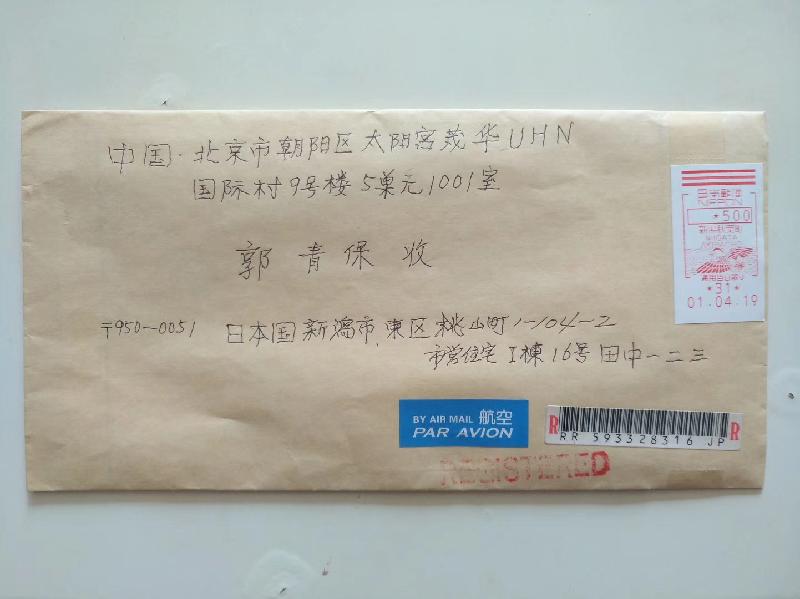 中国·北京市朝阳区太阳宫茂华UHN
国际村9号楼5单元1001室
郭青保收
〒950-0051 日本国新潟市東区桃山町1-104-2
市営住宅I棟16号田中一二三
日本郵便
NIPPON
*500
NIIGATA
*31*
01.04.19
BY AIR MAIL 航空
PAR AVION
R RR 593328316 JP R
REGISTERED